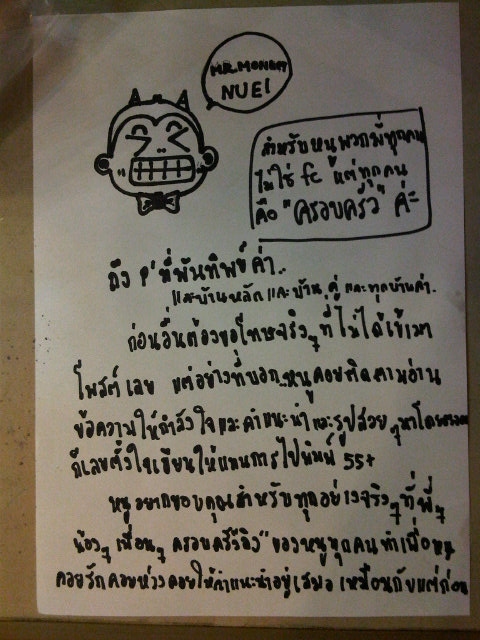 MR.MONKEY
NUEI
สำหรับหนูพวกพี่ทุกคน
ไม่ใช่ fc แต่ทุกคน
คือ "ครอบครัว" ค่ะ
ถึง P'ที่พันทิพย์ค่า..
และบ้านหลักและบ้านคู่และทุกบ้านค่า.
ก่อนอื่นต้องขอโทษจริงๆที่ไม่ได้เข้ามา
โพสต์เลย แต่อย่างที่บอก หนูคอยติดตามอ่าน
ข้อความให้กำลังใจและคำแนะนำและรูปสวยๆมาโดยตลอด
ก็เลยตั้งใจเขียนให้แทนการไปพิมพ์ 55+
หนูอยากขอบคุณสำหรับทุกอย่างจริงๆที่พี่ๆ
น้องๆ เพื่อนๆ ครอบครัวลิง" ของหนูทุกคนทำเพื่อหนู
คอยรักคอยห่วงคอยให้คำแนะนำอยู่เสมอ เหมือนกับแต่ก่อน